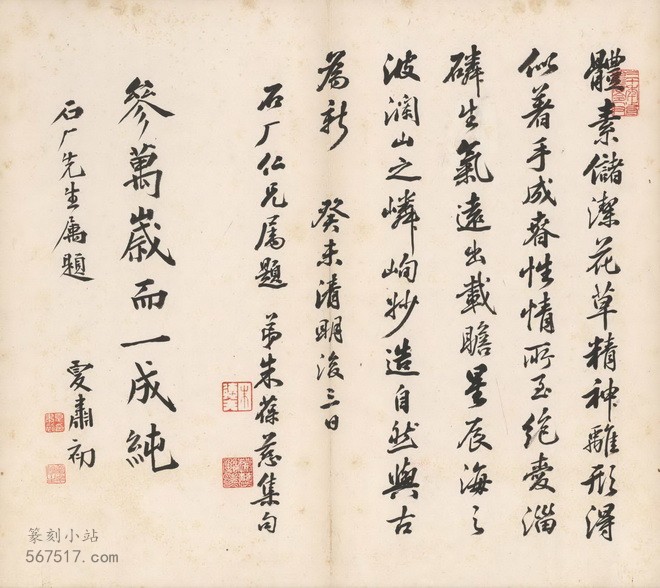 體素儲潔花草精神離形得
似著手成春性情所至絕愛淄
磷生氣遠出載瞻星辰海之
波瀾山之嶙峋妙造自然與古
為新　癸未清明後三日
石厂仁兄屬題　弟朱葆慈集句
參萬歲而一成純
石厂先生屬題
夏肅初
篆刻小站
567517.com